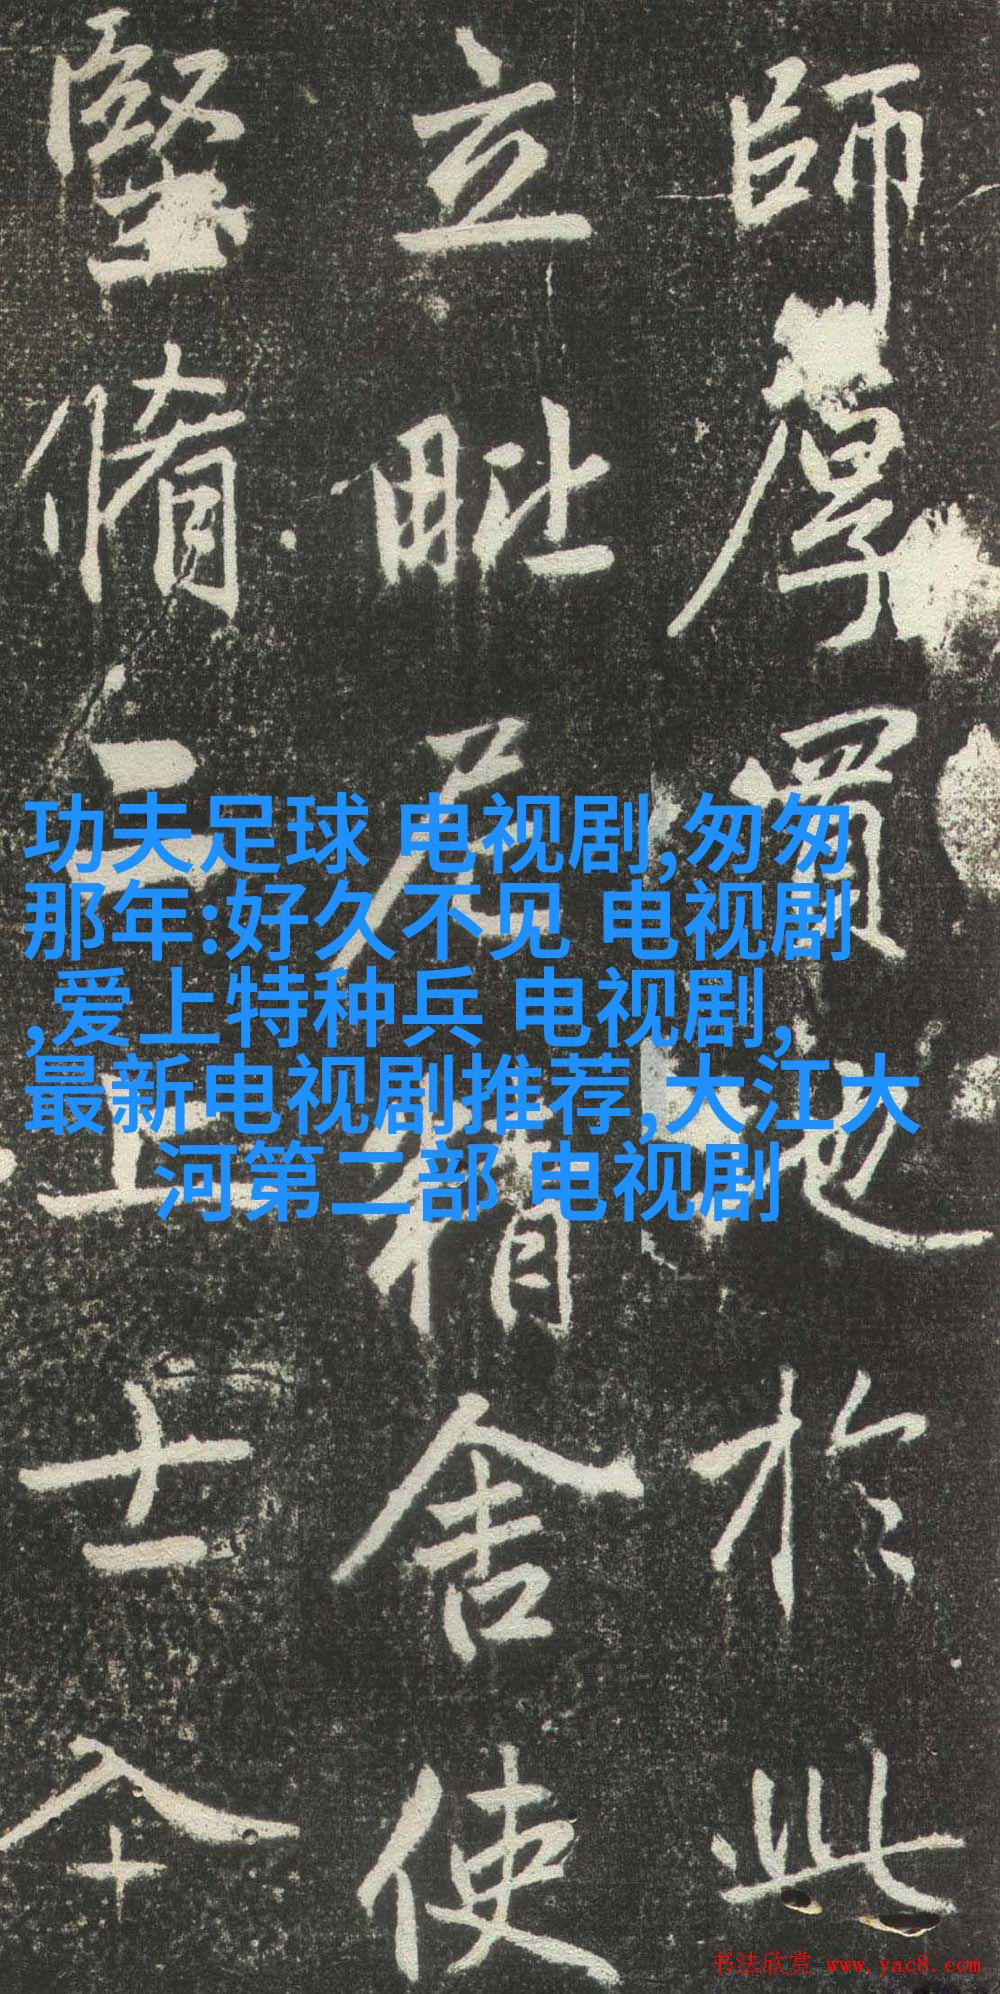 師厚地於此
立毗尼精舍使
堅脩二上士
功夫足球 电视剧,匆匆
那年:好久不见 电视剧
,爱上特种兵 电视剧,
最新电视剧推荐,大江大
河第二部 电视剧
书法欣赏 www.yac8.com